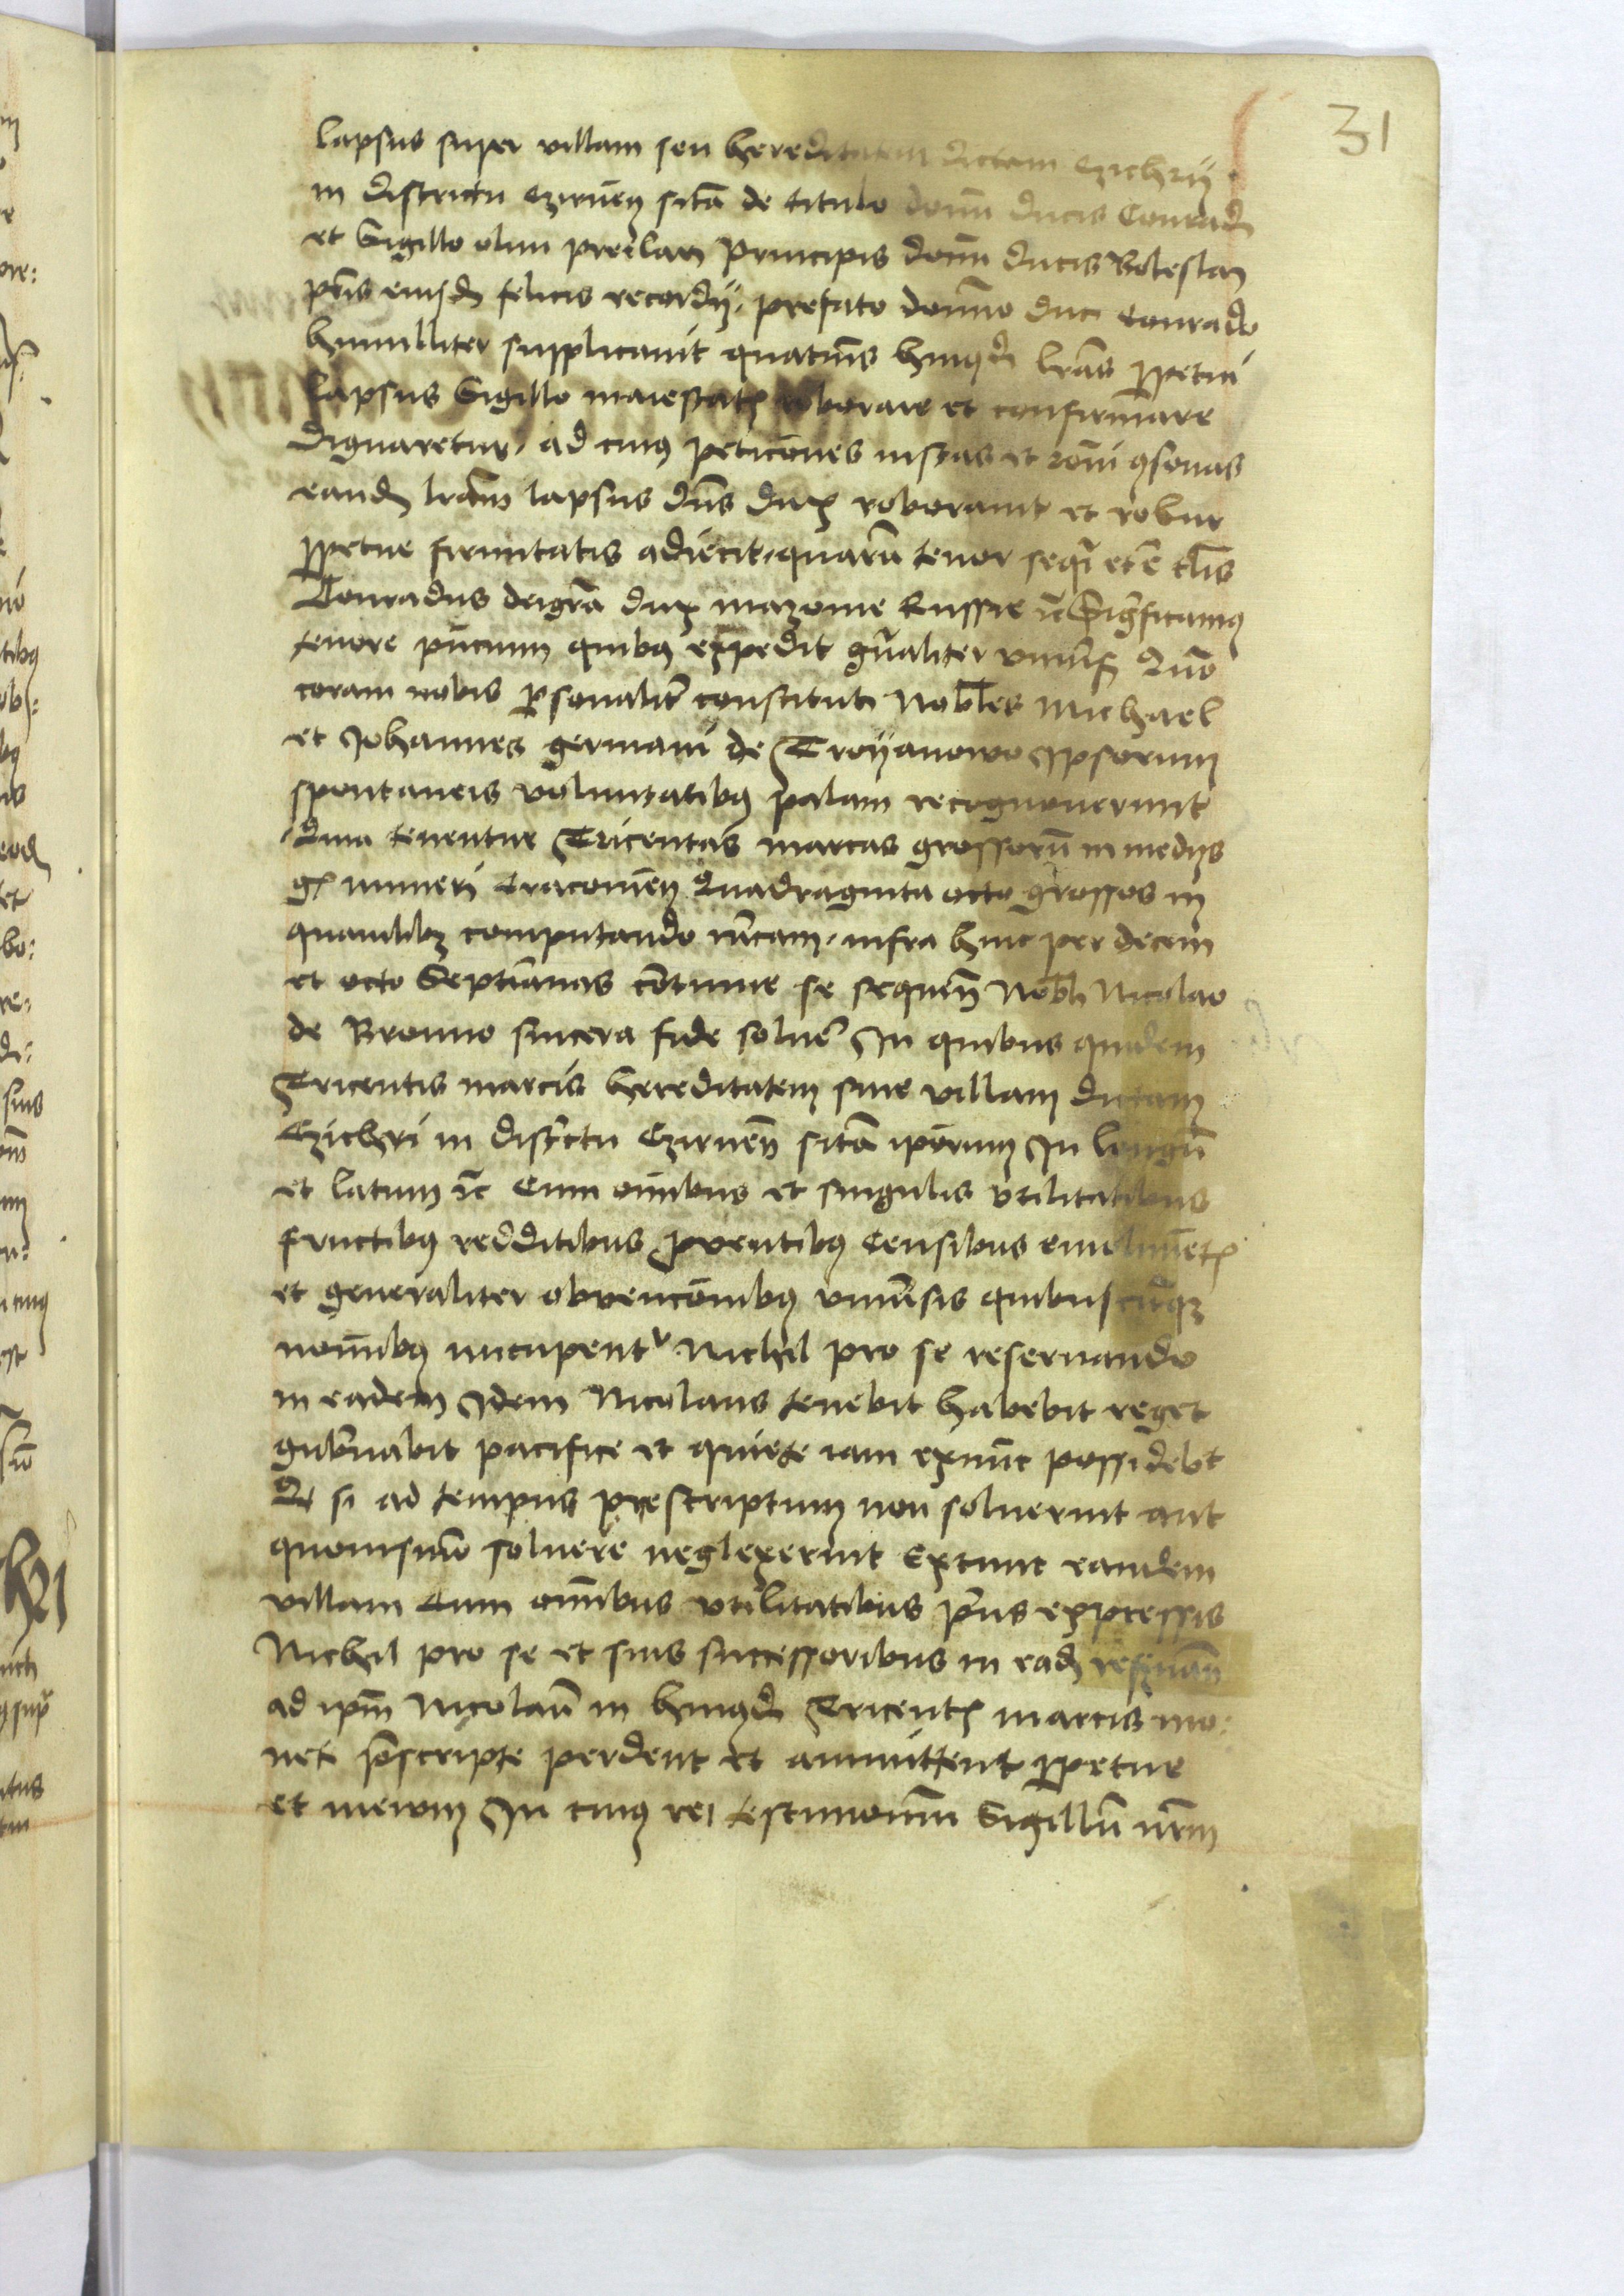 31
lapsus super villam seu hereditatem dictam Czichrij
in districtu Czirnen̄ sitā de titulo domī ducis Conradi
et Sigillo olim preclari Principis domī ducis Boleslai
pr̄is eiusd̄ felicis recordij, prefato domino duci Conrado
humilliter supplicauit quatinus huiusd̄i lr̄as ꝑpetui
lapsus Sigillo maiestatis roborare et confirmare
dignaretur, ad cuius peticōnes iustas et rōni ꝯsonas
eand̄ lr̄am lapsus dn̄s dux roborauit et robur
ꝑpetue firmitatis adiecit, quarū tenor sequit̄ et ē tl̄is
Conradus dei gr̄a dux mazouie Russie ⁊c̄ Significamus
tenore pn̄cium quibus expedit gn̄aliter vniūsis Quō
coram nobis ꝑsonalit̄ constituti Nobiles Michael
et Johannes germani de Troyanowo ipsorum
spontaneis voluntatibus palam recognouerunt
Quia tenentur Tricentas marcas grossorū in medijs
gr̄ numeri Cracouien̄ Quadraginta octo grossos in
quamlibet computando mr̄cam, infra hinc per decem
et octo Septīanas cōtinue se sequen̄ Nobili Nicolao
de Bromo sincera fide soluer̄ In quibus quidem
Tricentis marcis hereditatem siue villam dictam
Czichri in districtu Czirnen̄ sitā ip̄orum In longū
et latum ⁊c̄ Cum oībus et singulis vtilitatibus
fructibus redditibus ꝓuentibus Censibus emolimētis
et generaliter obuencōnibus vniūsis quibuscūqꝫ
nomībus nūcupentur Nichil pro se reseruando
in eadem Idem Nicolaus tenebit habebit reget
gub̄nabit pacifice et quiete iam exnūc possidebit
Et si ad tempus prescriptum non soluerint aut
quouismō soluere neglexerint Extunc eandem
villam Cum omībus vtilitatibus p̄us expressis
Nichil pro se et suis successoribus in ead̄ reseruan̄
ad ip̄m Nicolaū in huiusd̄ Tricentis marcis mo:
nete p̄scripte perdent et ammittent ꝑpetue
et in ewm In cuius rei testimoniū Sigillū nr̄m